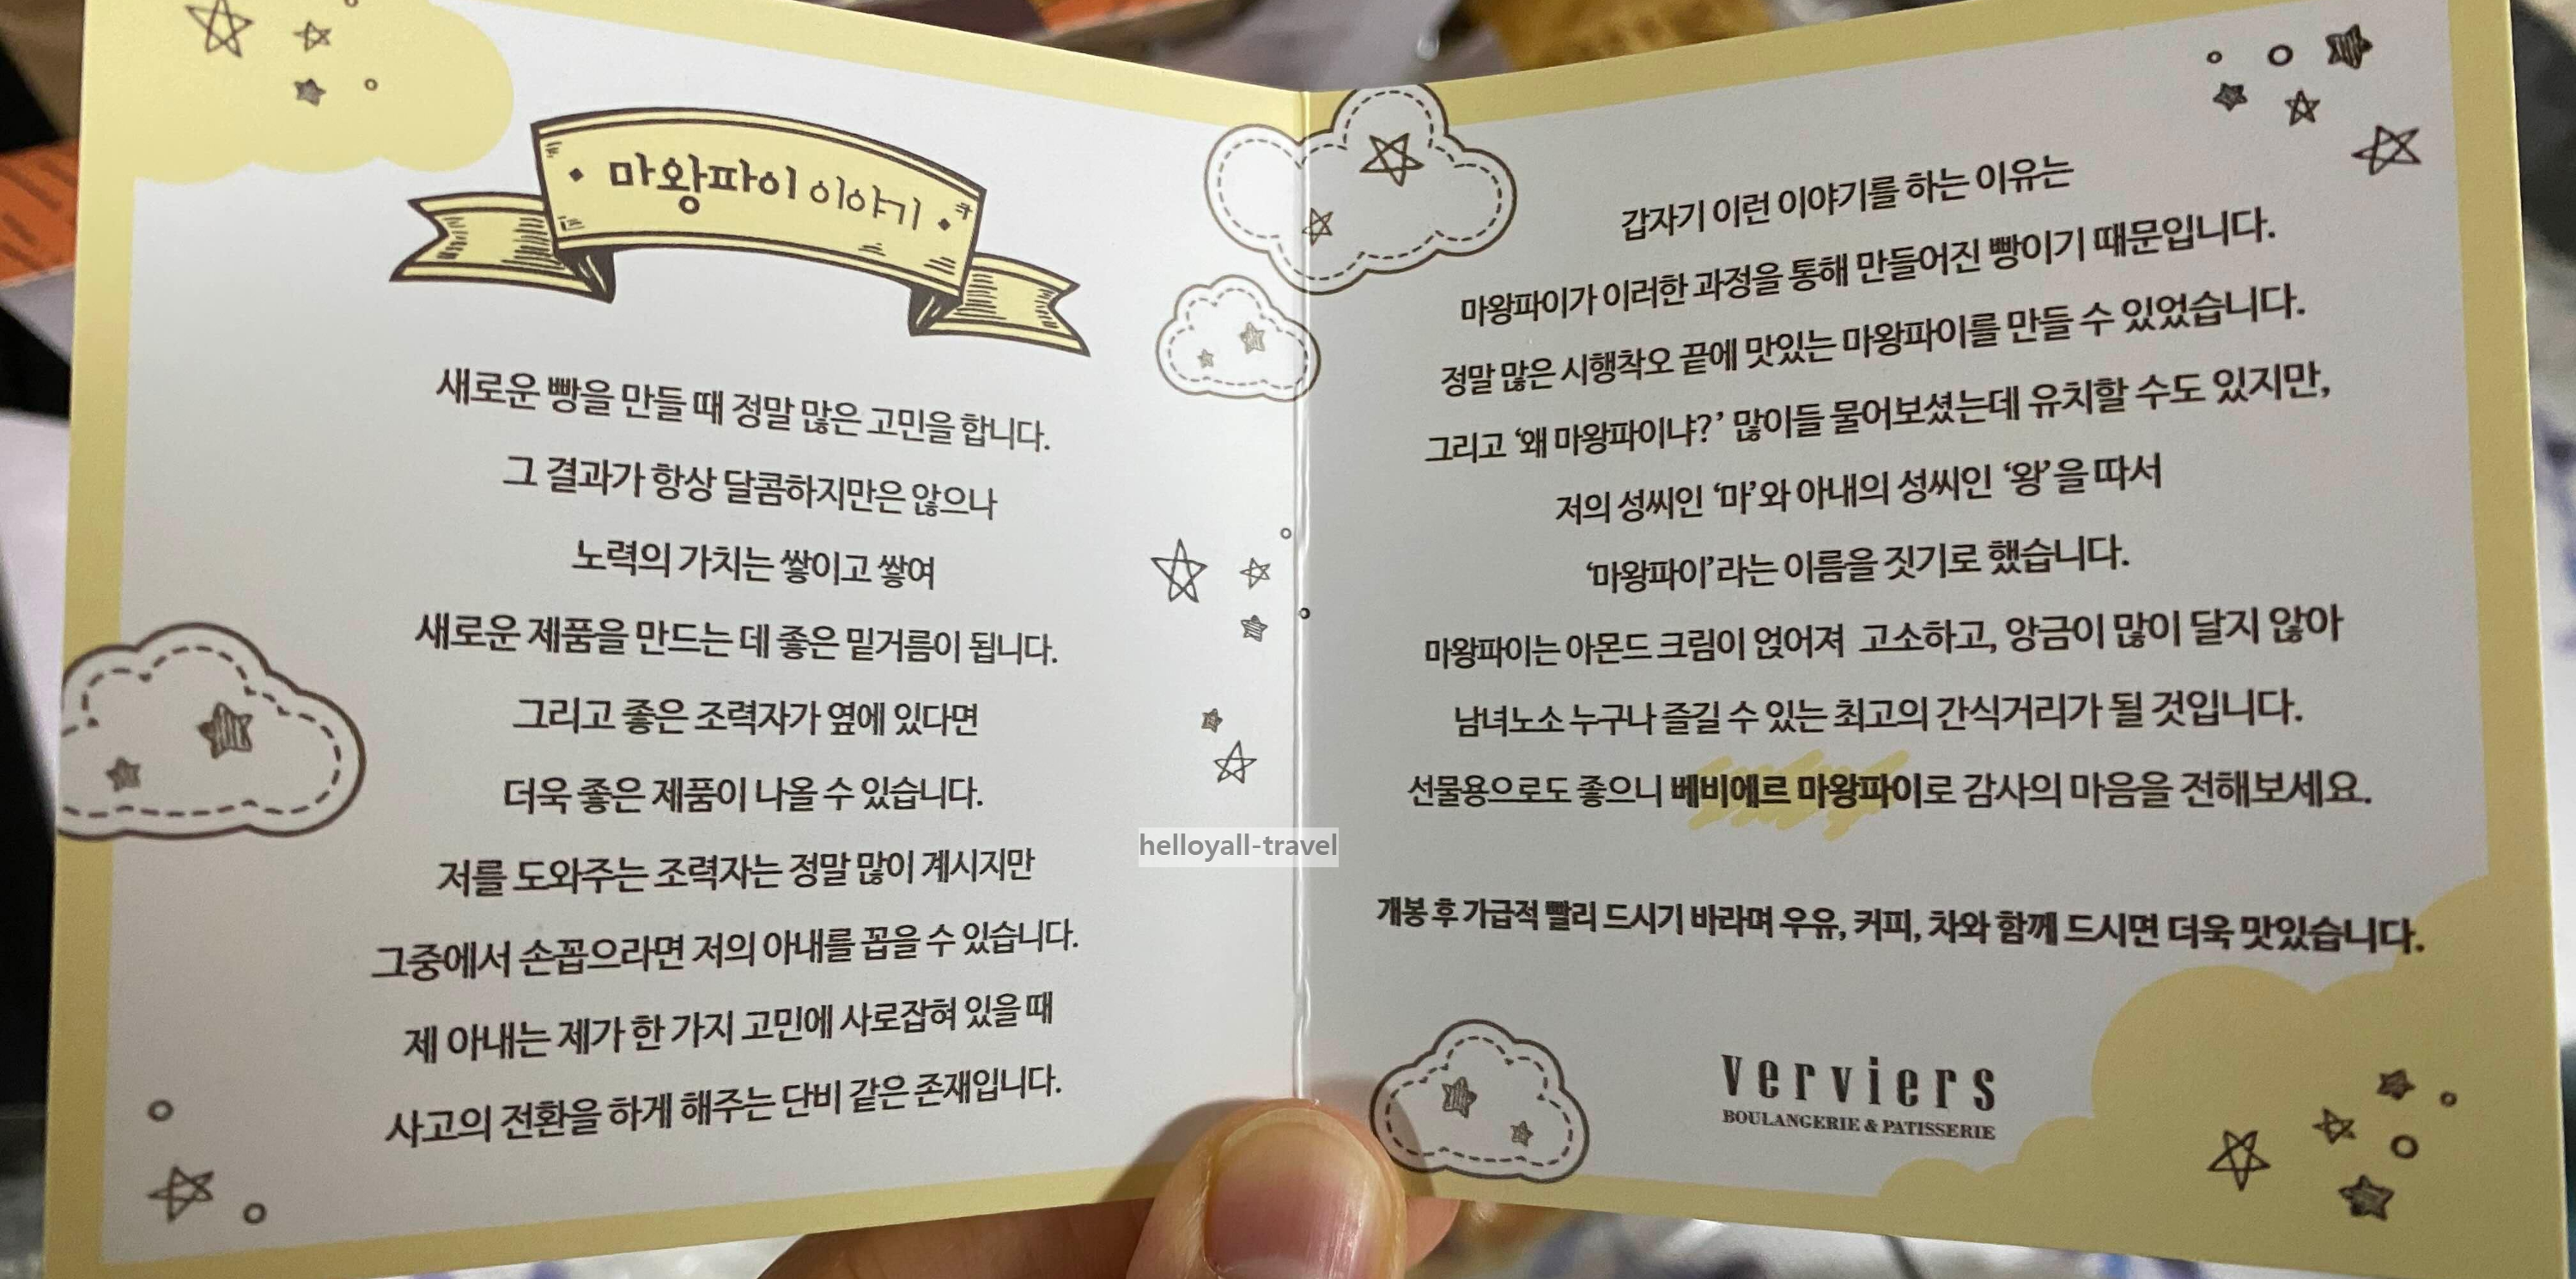 마왕파이 이야기
새로운 빵을 만들 때 정말 많은 고민을 합니다.
그 결과가 항상 달콤하지만은 않으나
노력의 가치는 쌓이고 쌓여
새로운 제품을 만드는 데 좋은 밑거름이 됩니다.
그리고 좋은 조력자가 옆에 있다면
더욱 좋은 제품이 나올 수 있습니다.
저를 도와주는 조력자는 정말 많이 계시지만
그중에서 손꼽으라면 저의 아내를 꼽을 수 있습니다.
제 아내는 제가 한 가지 고민에 사로잡혀 있을 때
사고의 전환을 하게 해주는 단비 같은 존재입니다.
갑자기 이런 이야기를 하는 이유는
마왕파이가 이러한 과정을 통해 만들어진 빵이기 때문입니다.
정말 많은 시행착오 끝에 맛있는 마왕파이를 만들 수 있었습니다.
그리고 ‘왜 마왕파이냐?’ 많이들 물어보셨는데 유치할 수도 있지만,
저의 성씨인 ‘마’와 아내의 성씨인 ‘왕’을 따서
‘마왕파이’라는 이름을 짓기로 했습니다.
마왕파이는 아몬드 크림이 얹어져 고소하고, 앙금이 많이 달지 않아
남녀노소 누구나 즐길 수 있는 최고의 간식거리가 될 것입니다.
선물용으로도 좋으니 베비에르 마왕파이로 감사의 마음을 전해보세요.
개봉 후 가급적 빨리 드시기 바라며 우유, 커피, 차와 함께 드시면 더욱 맛있습니다.
verviers
BOULANGERIE & PATISSERIE
helloyall-travel